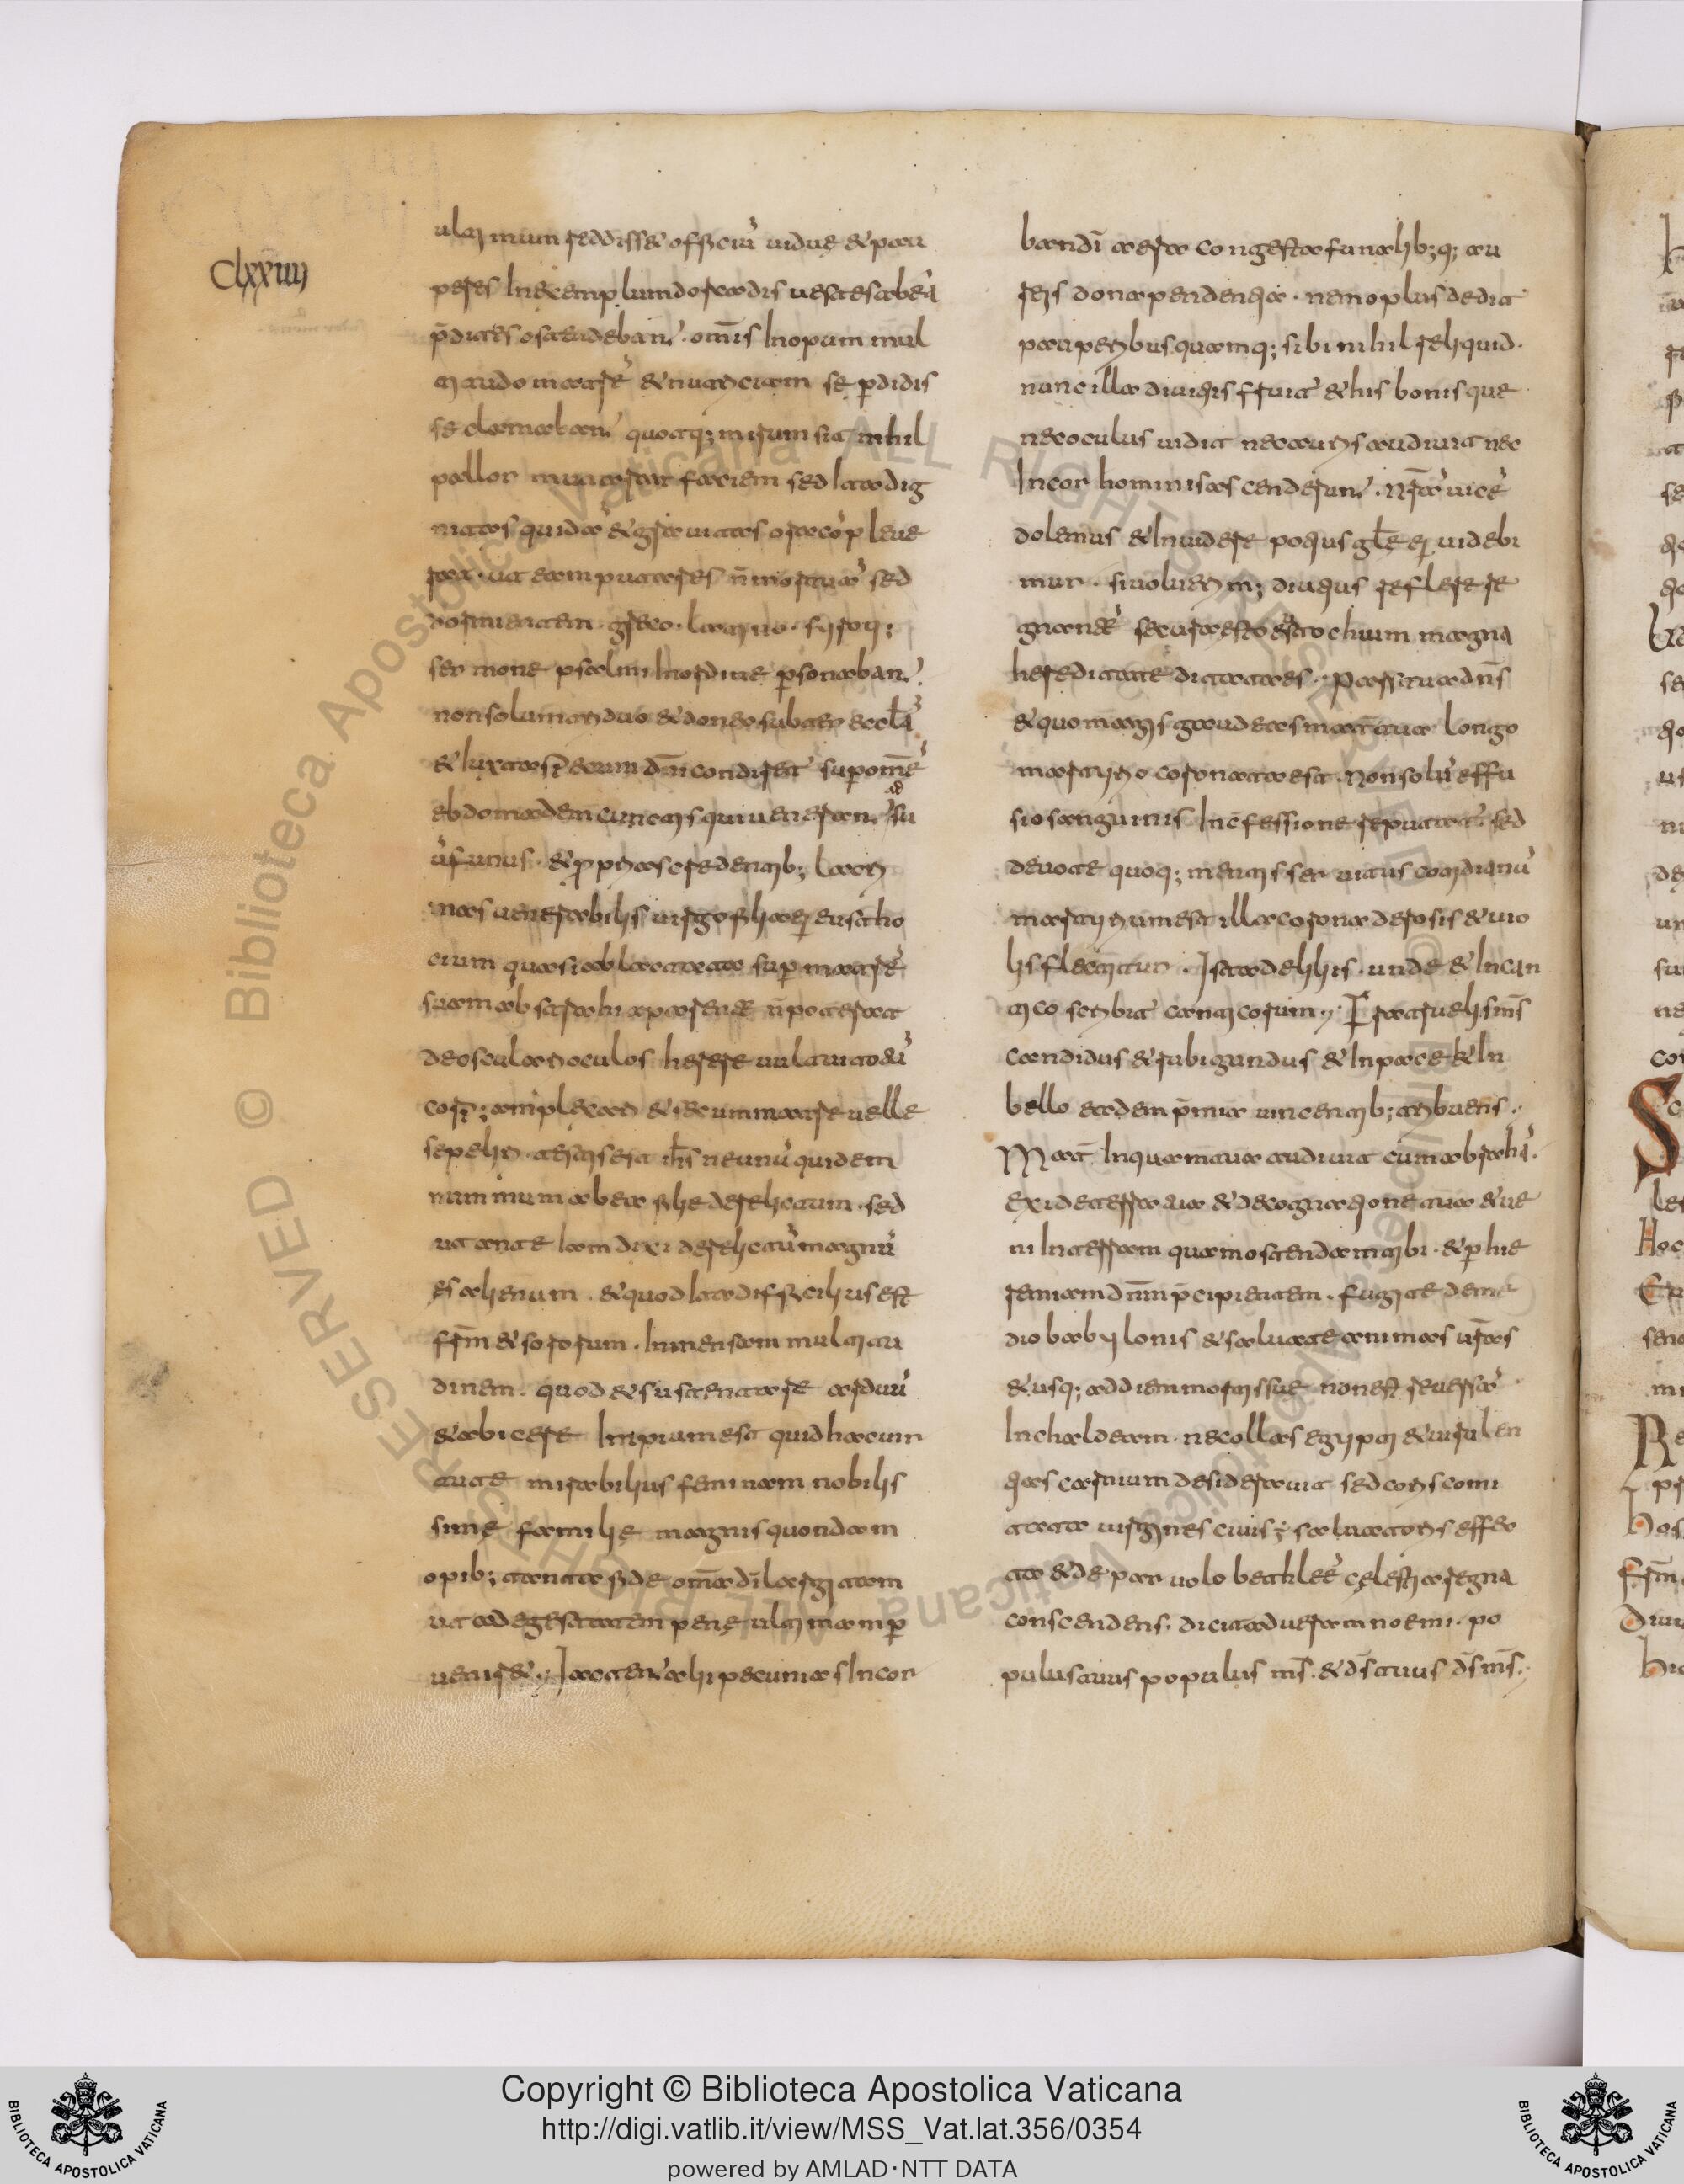 Clxxiiii
ultimum reddisset officiũ uiduę et pau
peres Inexemplum dorcadis uestes ab ea
p̄ditas ostendebant. om̄is Inopum mul
titudo matrẽ et nutriciam se p̱didis
se clamabant quodq; mirum sit nihil
pallor mutarat faciem sed Ita dig
nitas quidã et grauitas ora cõpleue
rat. ut eam putares ñ mortuã sed
dormientem. greco. latino. syroq;
sermone psalmi Inordine p̱sonabant
non solum triduo et donec subter eccl̄ã
et Iuxta specum dñi conderet᷑ sup̱ om̃ẽ
ebdomadem cunctis qui uenerant su
ũ funus. et pprias credentib; lacri
mas uenerabilis uirgo filia ei eustho
cium quasi ablactata sup̱ matrẽ
suam abstrahi a parente ñ poterat
deosculari oculos herere uultui totũ
corp; amplexari et se cum matre uelle
sepeliri. testis est ih̄s ne unũ quidem
nummum ab ea filie derelictum. sed
ut ante Iam dixi derelictũ magnũ
ęs alienum. et quod Ita difficilius est
fr̄m et sororum. Inmensam multitu
dinem. quod et sustentare arduũ
et abicere Impium est quid hac uir
tute mirabilius feminam nobilis
simę familię magnis quondam
opib; tanta fide om̄a dilargitam
ut ad egestatem penę ultimam p̱
ueniret. Iactent alii pecunias Incor
bandĩ aera congesta funalib;q; au
reis dona pendentia. nemo plus dedit
pauperibus quamq; sibi nihil reliquid.
nunc illa diuitiis fruit᷑ et his bonis que
nec oculus uidit nec auris audiuit nec
Incor hominis ascenderunt. nr̄ã uicẽ
dolemus et Inuidere potius glę ei uidebi
mur. si uoluerim; diutius reflere re
gnantẽ secura esto estochium magna
hereditate ditata es. Pars tua dñs
et quo magis gaudeas mater tua longo
martirio coronata est. Non solũ effu
sio sanguinis Incfessione reputatur sed
deuote quoq; mentis seruitus cotidianũ
martirium est illa corona de rosis et uio
lis flectitur. Ista de liliis. unde et Incan
tico scribit᷑ canticorum. Fratruelis m̄s
candidus et rubigundus et Inpace et In
bello eadem p̄mia uincentib; tribuens.
Mat Inquam tua audiuit cum abrahã.
exi de terra tua et de cognatione tua et ue
ni Interram quam ostendam tibi. et p̱ hie
remiam dñm p̄cipientem. fugite de me
dio babylonis et saluate animas ur̄as
et usq; ad diem mortis suę non est reuersa
Inchaldeam. nec ollas egypti et uirulen
tias carnium desiderauit sed choris comi
tata uirgines ciuis; saluatoris effec
ta et de paruolo bethleẽ celestia regna
conscendens. dicit ad ueram noemi. po
pulus tuus populus m̄s. et d̄s tuus d̄s m̄s.
Copyright © Biblioteca Apostolica Vaticana
http://digi.vatlib.it/view/MSS_Vat.lat.356/0354
powered by AMLAD·NTT DATA